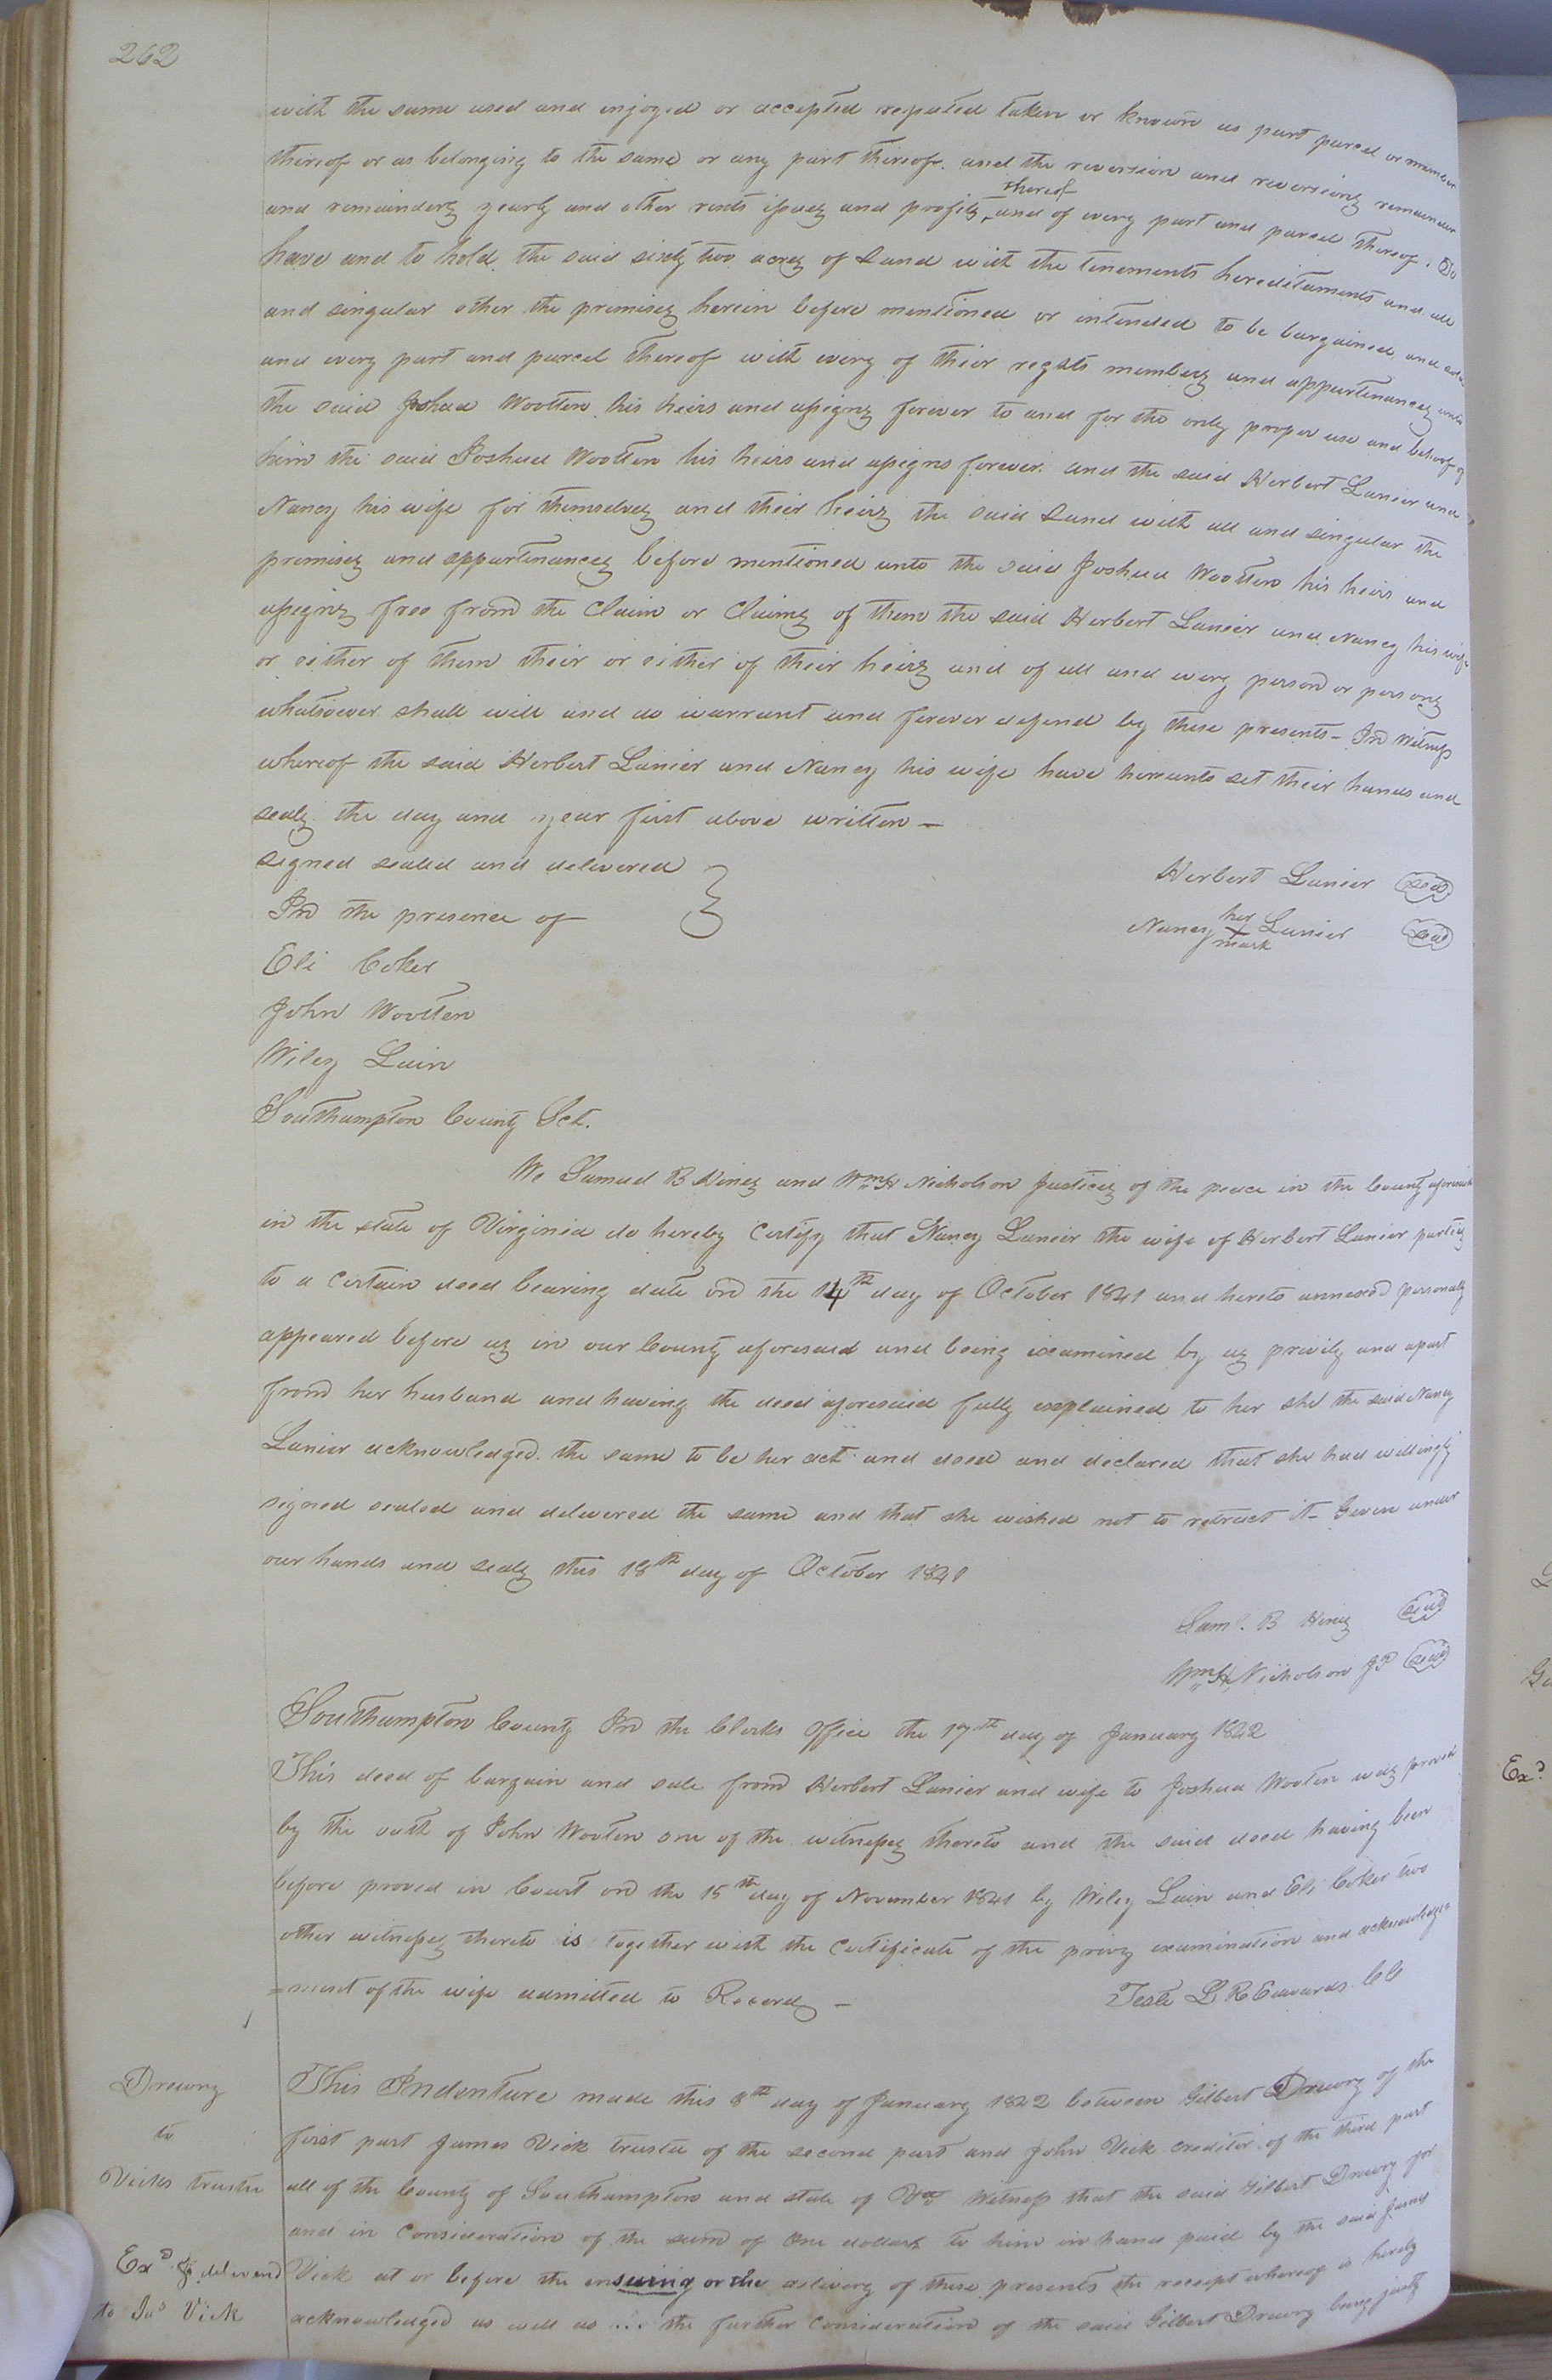 262
with the same used and enjoyed or accepted reputed taken or known as part parcel or member
thereof or as belonging to the same or any part thereof. and the reversion and reversions remainder
and remainders yearly and other rents issues and profits thereof and of every part and parcel thereof. To
have and to hold the said sixty two acres of Land with the tenements hereditaments and all
and singular other the premises herein before mentioned or intended to be bargained and sold
and every part and parcel thereof with every of their rights members and appurtenances unto
the said Joshua Wootten his heirs and assigns forever to and for the only proper use and behoof of
him the said Joshua Wootten his heirs and assigns forever. and the said Herbert Lanier and
Nancy his wife for themselves and their heirs the said Land with all and singular the
premises and appurtenances before mentioned unto the said Joshua Wootten his heirs and
assigns free from the Claim or Claims of them the said Herbert Lanier and Nancy his wife
or either of them their or either of their heirs and of all and every person or persons
whatsoever shall will and do warrant and forever defend by these presents – In Witness
whereof the said Herbert Lanier and Nancy his wife have hereunto set their hands and
seals the day and year first above written –
signed sealed and delivered
In the presence of
Herbert Lanier seal
Nancy her X mark Lanier seal
Eli Coker
John Wootten
Wiley Lain
Southampton County Sct.
We Samuel B Hines and Wm H Nicholson Justices of the peace in the County aforesaid
in the state of Virginia do hereby Certify that Nancy Lanier the wife of Herbert Lanier parties
to a Certain deed bearing date on the 14th day of October 1841 and hereto annexed personally
appeared before us in our County aforesaid and being examined by us privily and apart
from her husband and having the deed aforesaid fully explained to her she the said Nancy
Lanier acknowledged the same to be her act and deed and declared that she had willingly
signed sealed and delivered the same and that she wished not to retract it – Given under
our hands and seals this 18th day of October 1841
Saml. B Hines seal
Wm H Nicholson JP seal
Southampton County In the Clerks Office the 17th day of January 1842
This deed of bargain and sale from Herbert Lanier and wife to Joshua Wooten was proved
by the oath of John Wooten one of the witnesses thereto and the said deed having been
before proved in Court on the 15th day of November 1841 by Wiley Lain and Eli Coker two
other witnesses thereto is together with the Certificate of the privy examination and acknowledge=
=ment of the wife admitted to Record –
Teste L R Edwards CC
Drewry
to
Vicks trustee
Exd & delivered
to Jas Vick
This Indenture made this 8th day of January 1842 between Gilbert Drewry of the
first part James Vick trustee of the second part and John Vick creditor of the third part
all of the County of Southampton and state of Va Witness that the said Gilbert Drewry for
and in Consideration of the sum of One dollars to him in hand paid by the said James
Vick at or before the ensuing or the delivery of these presents the receipt whereof is hereby
acknowledged as well as ... the further Consideration of the said Gilbert Drewry being justly
Exd